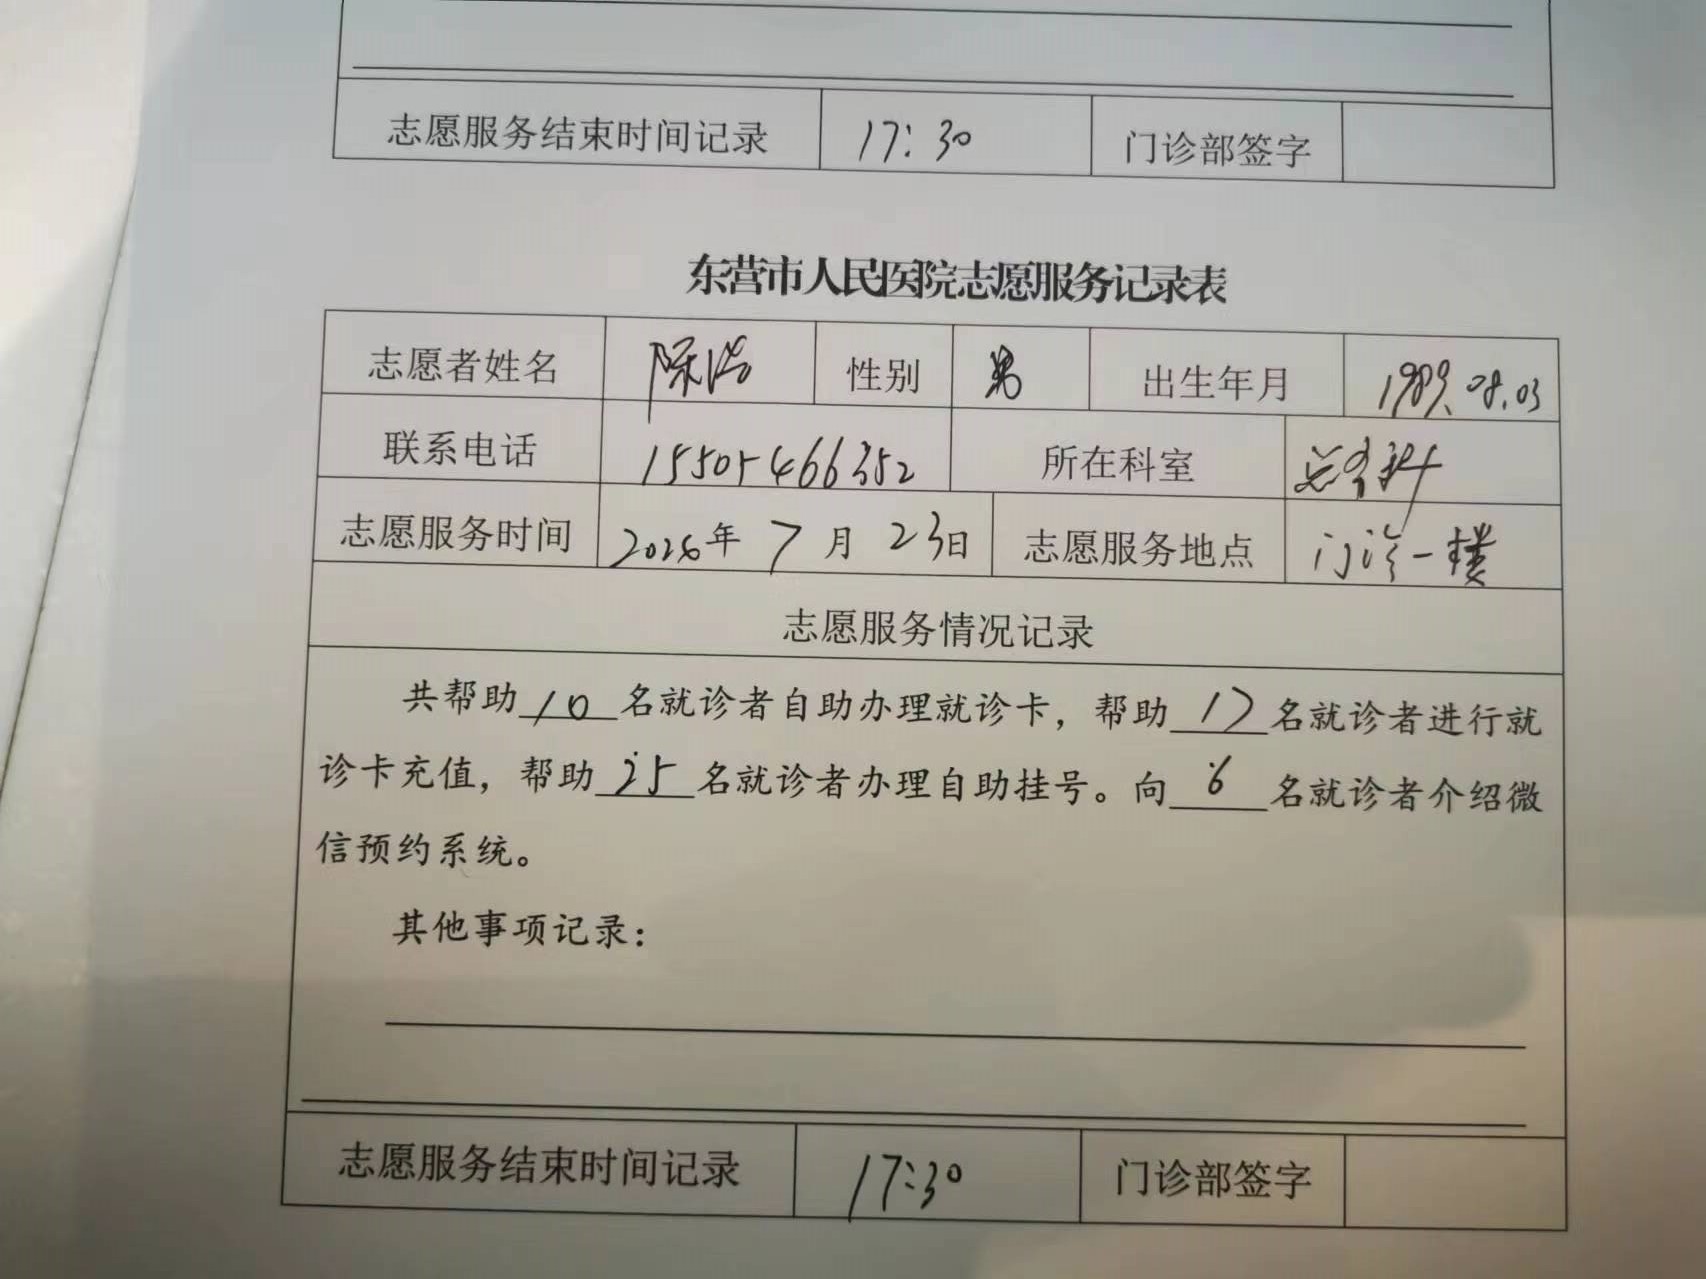 志愿服务结束时间记录 17:30 门诊部签字
东营市人民医院志愿服务记录表
志愿者姓名 陈浩 性别 男 出生年月 1989.08.03
联系电话 15505466352 所在科室 总务科
志愿服务时间 2026年 7 月 23日 志愿服务地点 门诊一楼
志愿服务情况记录
共帮助 10 名就诊者自助办理就诊卡，帮助 17 名就诊者进行就
诊卡充值，帮助 25 名就诊者办理自助挂号。向 6 名就诊者介绍微
信预约系统。
其他事项记录：
志愿服务结束时间记录 17:30 门诊部签字